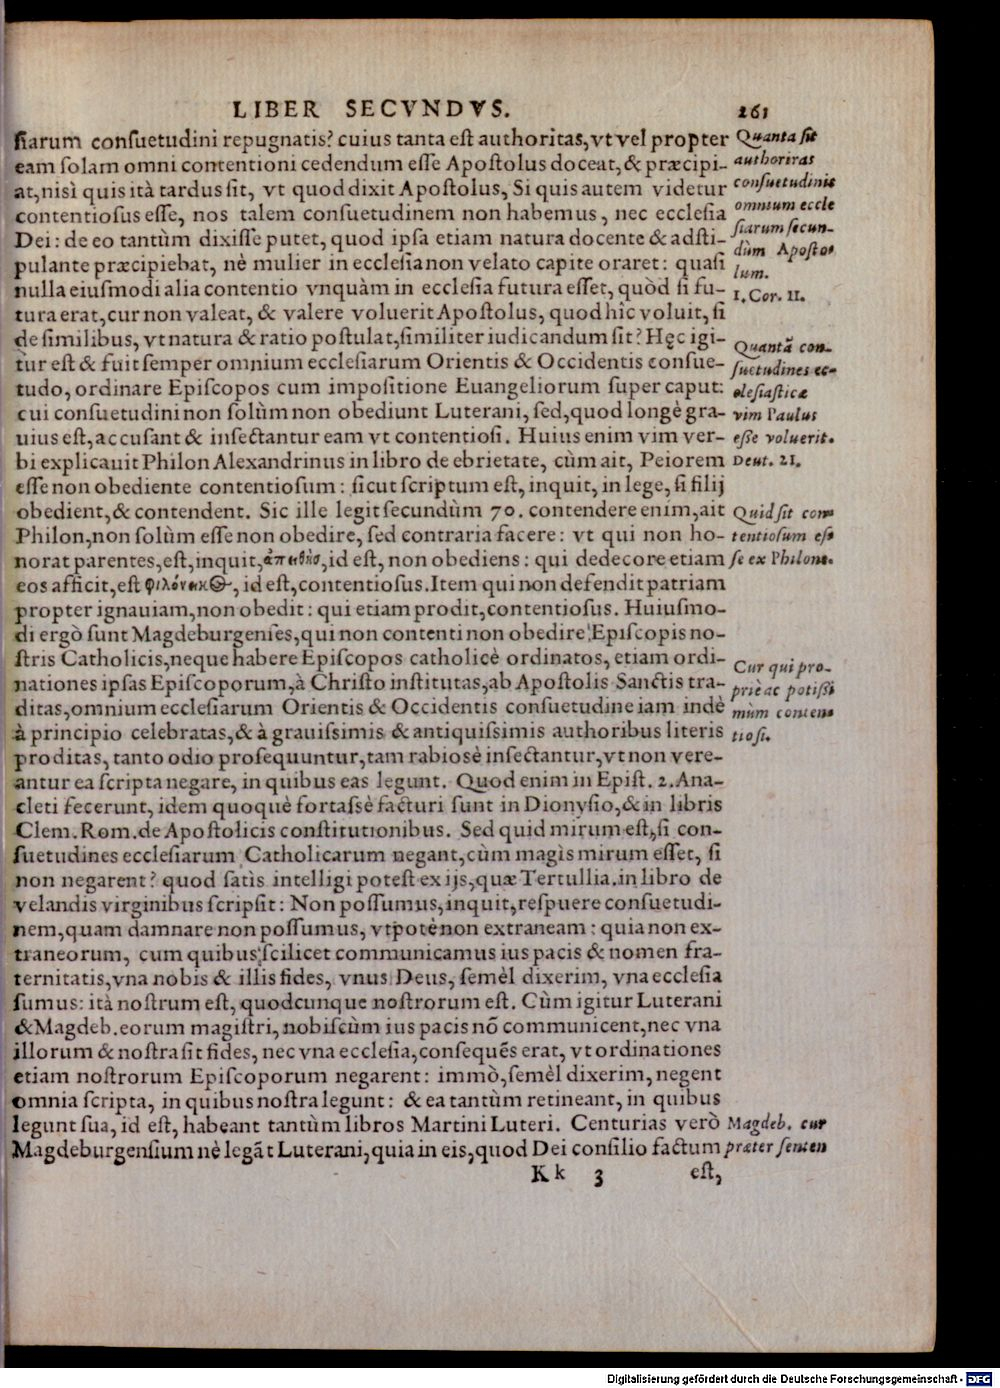 LIBER SECVNDVS. 261
ſiarum conſuetudini repugnatis? cuius tanta eſt authoritas,vt vel propter
eam ſolam omni contentioni cedendum eſſe Apoſtolus doceat,& præcipi-
at,nisì quis ità tardus ſit, vt quod dixit Apoſtolus, Si quis autem videtur
contentioſus eſſe, nos talem conſuetudinem non habemus, nec eccleſia
Dei: de eo tantùm dixiſſe putet, quod ipſa etiam natura docente & adſti-
pulante præcipiebat, nè mulier in eccleſia non velato capite oraret: quaſi
nulla eiuſmodi alia contentio vnquàm in eccleſia futura eſſet, quòd ſi fu-
tura erat,cur non valeat, & valere voluerit Apoſtolus, quod hîc voluit, ſi
de ſimilibus, vt natura & ratio poſtulat,ſimiliter iudicandum ſit? Hęc igi-
tùr eſt & fuit ſemper omnium eccleſiarum Orientis & Occidentis conſue-
tudo, ordinare Epiſcopos cum impoſitione Euangeliorum ſuper caput:
cui conſuetudini non ſolùm non obediunt Luterani, ſed,quod longè gra-
uius eſt,accuſant & inſectantur eam vt contentioſi. Huius enim vim ver-
bi explicauit Philon Alexandrinus in libro de ebrietate, cùm ait, Peiorem
eſſe non obediente contentioſum: ſicut ſcriptum eſt, inquit, in lege, ſi filij
obedient,& contendent. Sic ille legit ſecundùm 70. contendere enim,ait
Philon,non ſolùm eſſe non obedire, ſed contraria facere: vt qui non ho-
norat parentes,eſt,inquit,ἀπειθὴσ,id eſt, non obediens: qui dedecore etiam
eos afficit,eſt φιλόνεικος, id eſt,contentioſus.Item qui non defendit patriam
propter ignauiam,non obedit: qui etiam prodit,contentioſus. Huiuſmo-
di ergò ſunt Magdeburgenſes,qui non contenti non obedire Epiſcopis no-
ſtris Catholicis,neque habere Epiſcopos catholicè ordinatos, etiam ordi-
nationes ipſas Epiſcoporum,à Chriſto inſtitutas,ab Apoſtolis Sanctis tra-
ditas,omnium eccleſiarum Orientis & Occidentis conſuetudine iam indè
à principio celebratas,& à grauiſsimis & antiquiſsimis authoribus literis
proditas, tanto odio proſequuntur,tam rabiosè inſectantur,vt non vere-
antur ea ſcripta negare, in quibus eas legunt. Quod enim in Epiſt. 2. Ana-
cleti fecerunt, idem quoquè fortaſsè facturi ſunt in Dionyſio,& in libris
Clem. Rom. de Apoſtolicis conſtitutionibus. Sed quid mirum eſt,ſi con-
ſuetudines eccleſiarum Catholicarum negant,cùm magìs mirum eſſet, ſi
non negarent? quod ſatìs intelligi poteſt ex ijs,quæ Tertullia.in libro de
velandis virginibus ſcripſit: Non poſſumus,inquit,reſpuere conſuetudi-
nem,quam damnare non poſſumus, vtpotè non extraneam: quia non ex-
traneorum, cum quibus ſcilicet communicamus ius pacis & nomen fra-
ternitatis,vna nobis & illis fides, vnus Deus, ſemèl dixerim, vna eccleſia
ſumus: ità noſtrum eſt, quodcunque noſtrorum eſt. Cùm igitur Luterani
& Magdeb.eorum magiſtri, nobiſcùm ius pacis nõ communicent,nec vna
illorum & noſtra ſit fides, nec vna eccleſia,conſequẽs erat, vt ordinationes
etiam noſtrorum Epiſcoporum negarent: immò,ſemèl dixerim, negent
omnia ſcripta, in quibus noſtra legunt: & ea tantùm retineant, in quibus
legunt ſua, id eſt, habeant tantùm libros Martini Luteri. Centurias verò
Magdeburgenſium nè legãt Luterani,quia in eis,quod Dei conſilio factum
Kk 3 eſt,
Quanta ſit
authoriras
conſuetudinis
omnium eccle
ſiarum ſecun-
dùm Apoſto-
lum.
1. Cor. 11.
Quantã con-
ſuetudines ec-
cleſiaſticæ
vim Paulus
eſſe voluerit.
Deut. 21.
Quid ſit con-
tentioſum eſ-
ſe ex Philone.
Cur qui pro-
priè ac potiſſi
mùm conten-
tioſi.
Magdeb. cur
præter ſenten
Digitalisierung gefördert durch die Deutsche Forschungsgemeinschaft - DFG